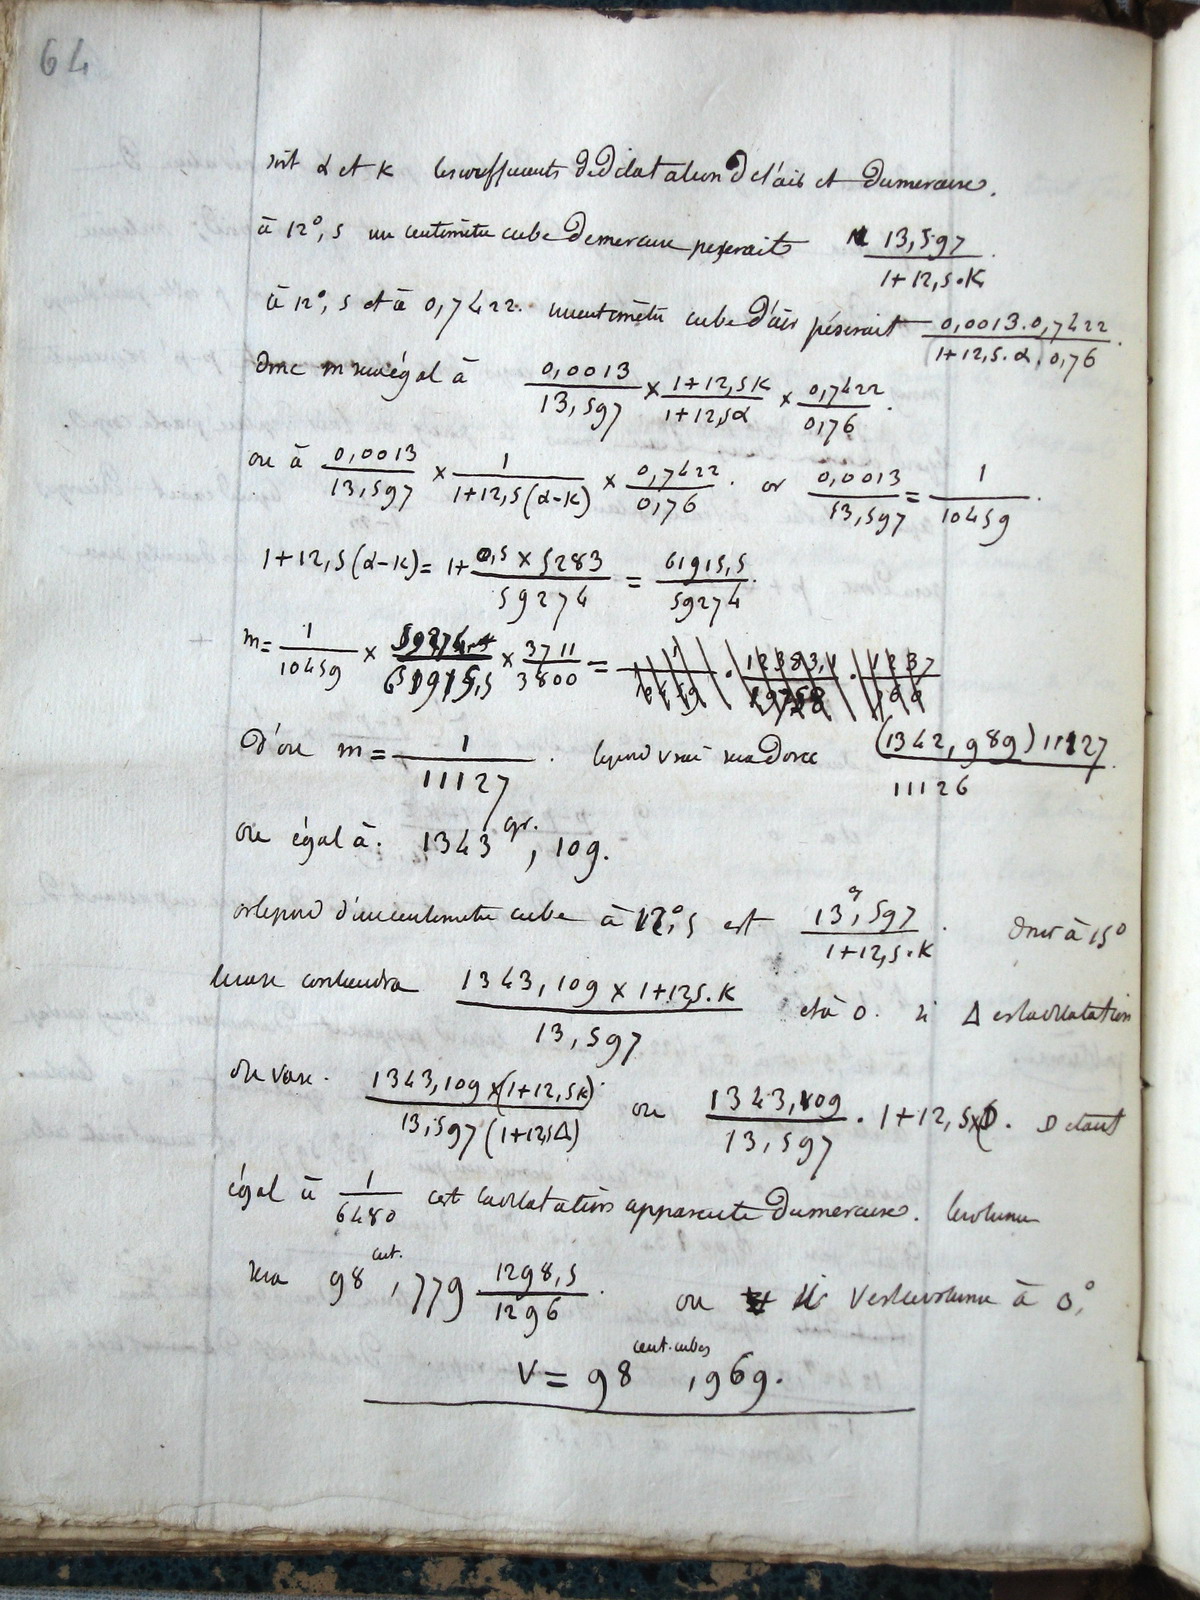 64
soit α et K les coefficients de dilatation de l'air et du mercure.
à 12°,5 un centimètre cube de mercure peserait 13,597 / 1+12,5.K
à 12°,5 et à 0,7422. un centimètre cube d'air péserait 0,0013.0,7422 / 1+12,5.α.0,76
donc m sera égal à 0,0013/13,597 × 1+12,5K/1+12,5α × 0,7422/0,76.
ou à 0,0013/13,597 × 1/1+12,5(α-K) × 0,7422/0,76. or 0,0013/13,597 = 1/10459.
1+12,5(α-K) = 1+ 0,5 × 5283/59274 = 61915,5/59274.
m= 1/10459 × 59274/61915,5 × 3711/3800 =
D'où m = 1/11127. le poid vrai sera donc (1342,989)11127/11126
ou égal à. 1343gr.,109.
or le poid d'un centimetre cube à 12°,5 est 13g,597/1+12,5.K. donc à 15°
le vase contiendra 1343,109 × 1+12,5.K/13,597 et à 0. si Δ est la dilatation
du vase. 1343,109×(1+12,5K)/13,597(1+12,5Δ) ou 1343,109/13,597 . 1+12,5×D. D étant
égal à 1/6480 c'est la dilatation apparente du mercure. le volume
sera 98cent.,779 1298,5/1296. ou si V est le volume à 0°,
V = 98cent.cubes,969.